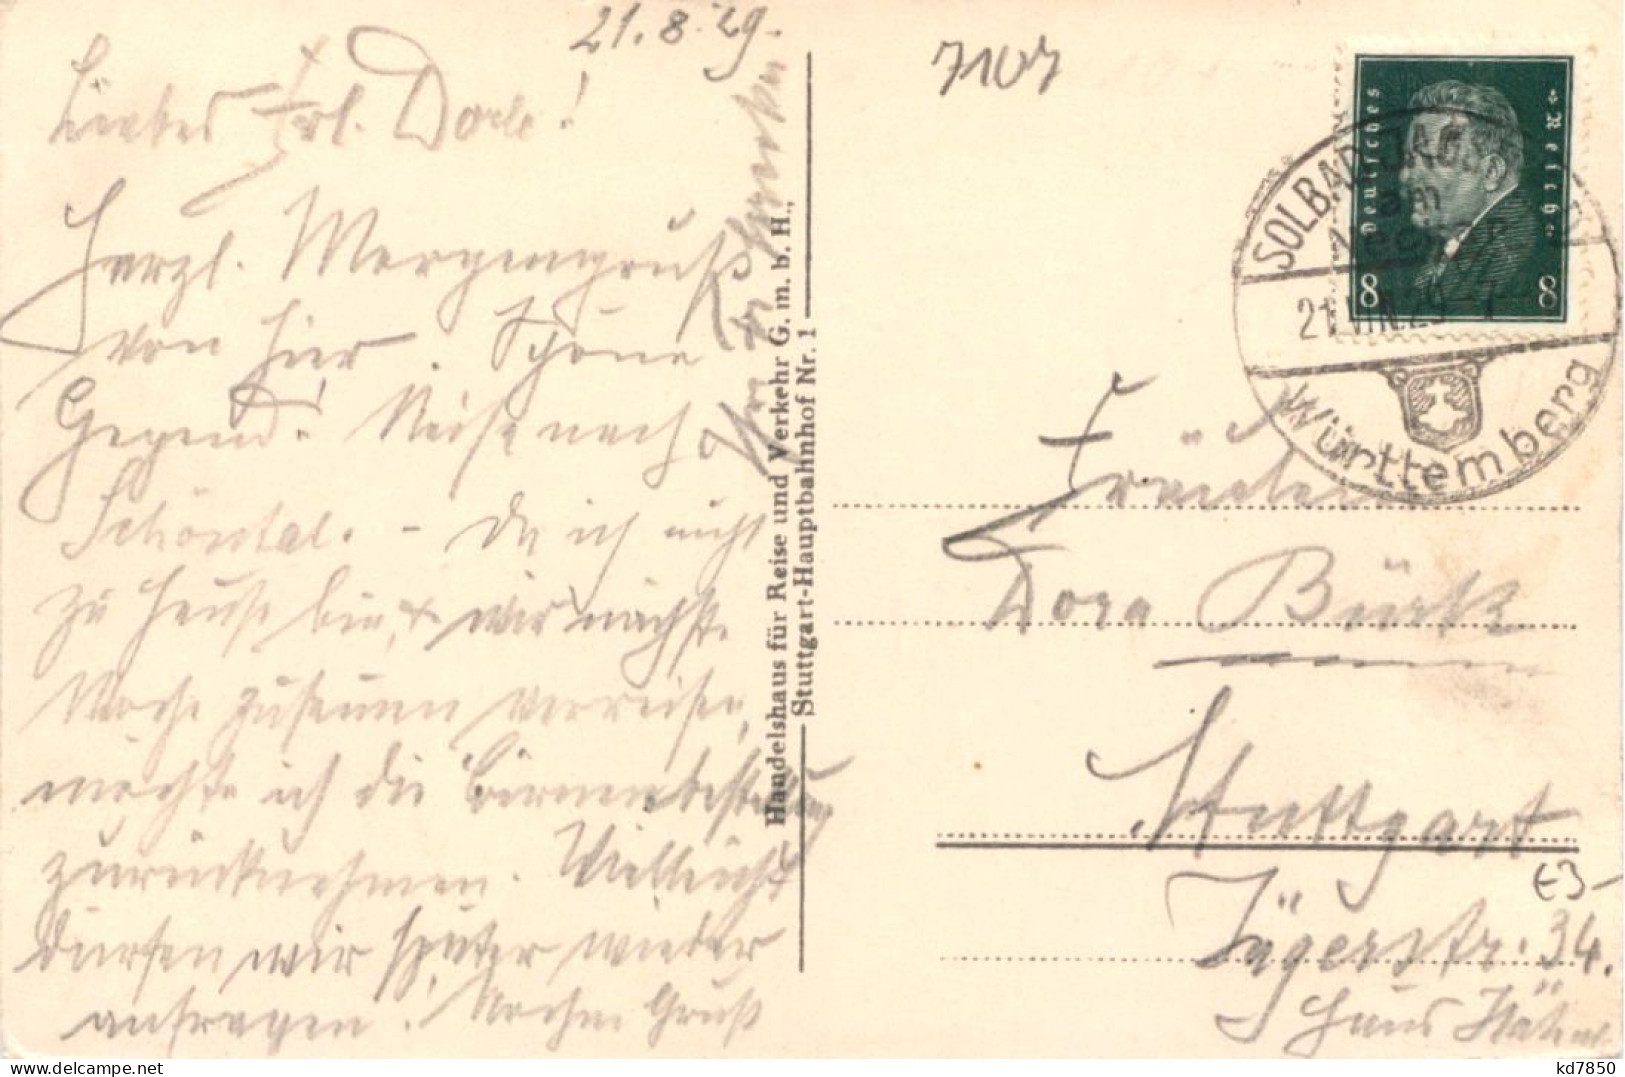 21.8.29.
Liebes Frl. Dorle!
Herzl. Morgengruß
von hier. Schöne
Gegend! Reise nach
Schöntal. - Da ich nicht
zu Hause bin, & wir nächste
Woche zusammen verreisen,
möchte ich die Birnenbestellung
zurücknehmen. Vielleicht
dürfen wir später wieder
anfragen. Nochm Gruß
Handelshaus für Reise und Verkehr G. m. b. H.,
Stuttgart-Hauptbahnhof Nr. 1
7107
Deutsches Reich
8 8
SOLBAD JAGST
am
21.VIII.29
Württemberg
Fräulein
Dora Bürk
Stuttgart
€3-
Jägerstr. 34.
Haus
kd7850